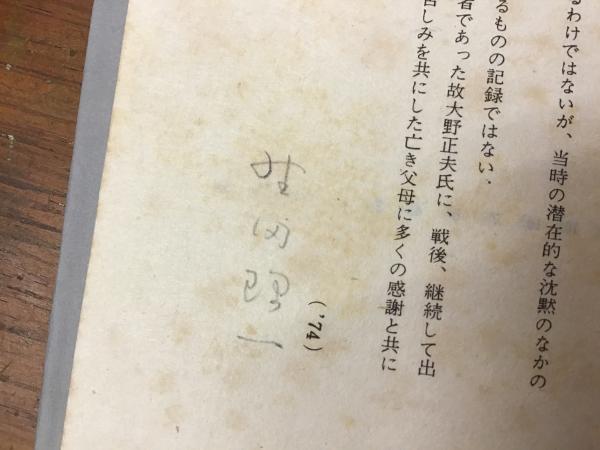 るわけではないが、当時の潜在的な沈黙のなかの
るものの記録ではない．
者であった故大野正夫氏に、戦後、継続して出
苦しみを共にした亡き父母に多くの感謝と共に
（'74）
野田理一